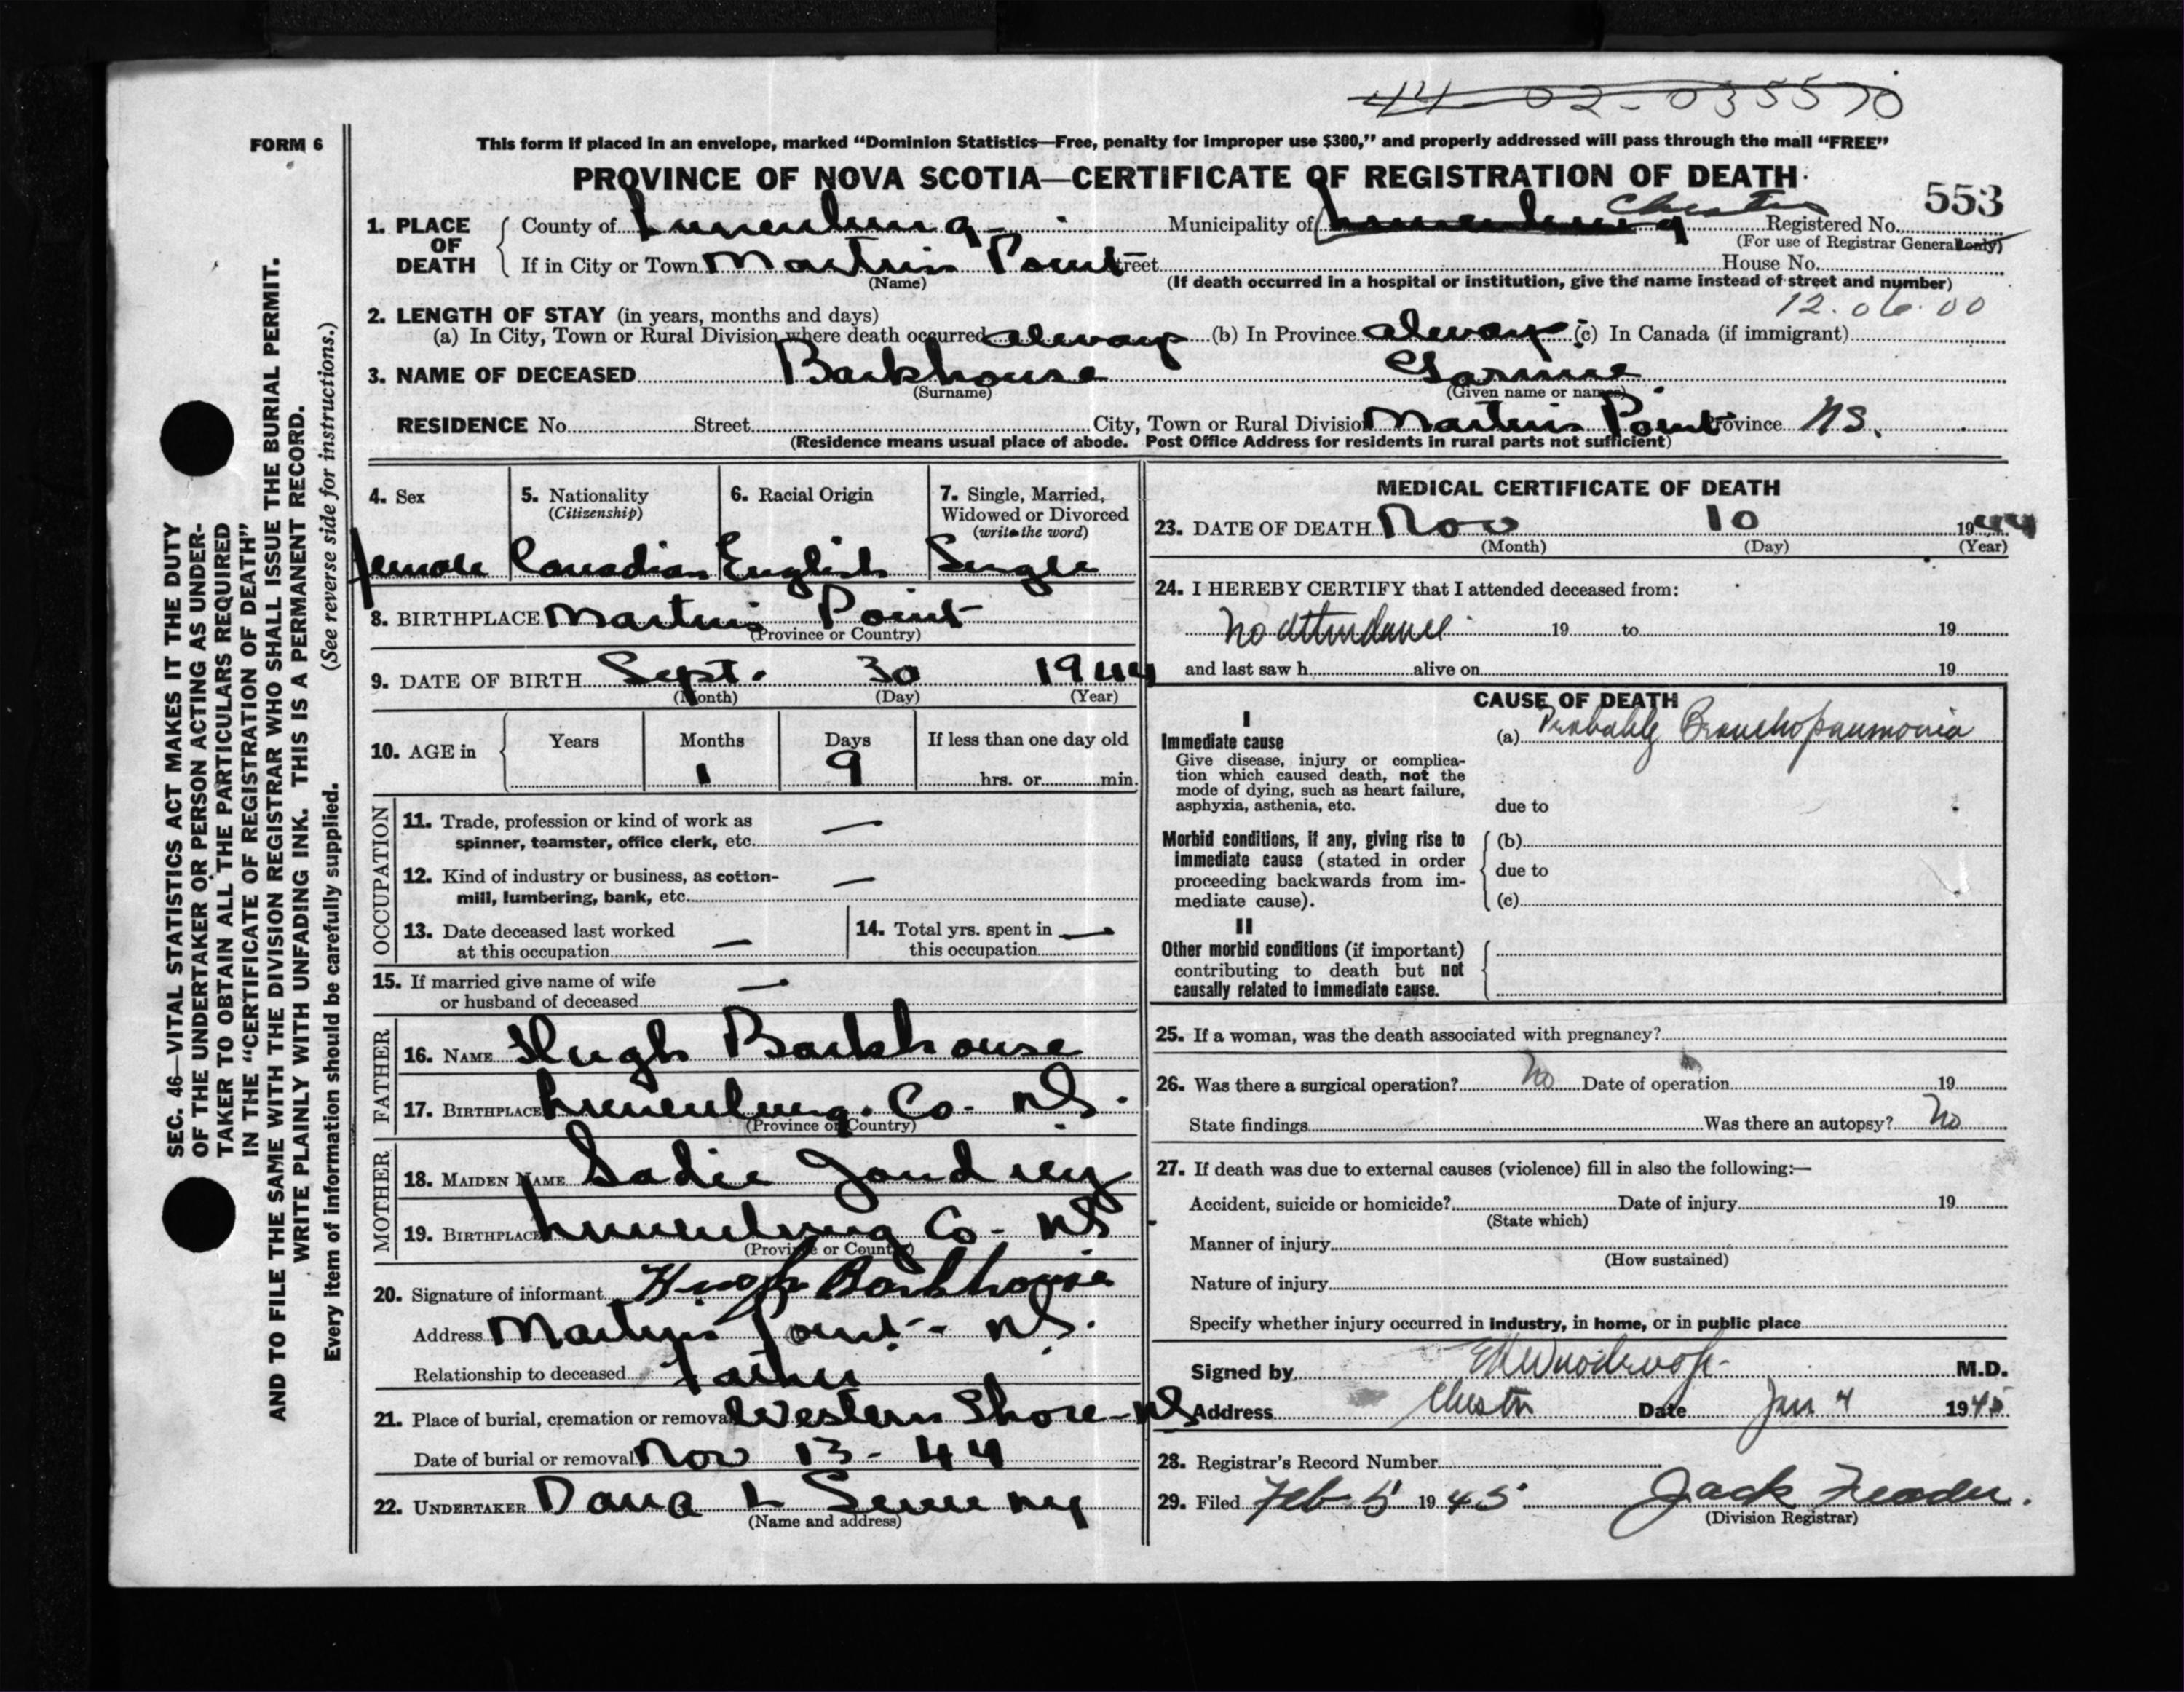 44-02-035570
FORM 6
This form if placed in an envelope, marked “Dominion Statistics—Free, penalty for improper use $300,” and properly addressed will pass through the mail “FREE”
PROVINCE OF NOVA SCOTIA—CERTIFICATE OF REGISTRATION OF DEATH
553
1. PLACE OF DEATH County of Lunenburg Municipality of Lunenburg Chester Registered No.
(For use of Registrar General only)
If in City or Town Martins Point Street House No.
(Name) (If death occurred in a hospital or institution, give the name instead of street and number)
12.06.00
2. LENGTH OF STAY (in years, months and days)
(a) In City, Town or Rural Division where death occurred always (b) In Province always (c) In Canada (if immigrant)
3. NAME OF DECEASED Barkhouse
(Surname) (Given name or names)
RESIDENCE No. Street City, Town or Rural Division Martins Point Province NS.
(Residence means usual place of abode. Post Office Address for residents in rural parts not sufficient)
4. Sex 5. Nationality (Citizenship) 6. Racial Origin 7. Single, Married, Widowed or Divorced (write the word)
female Canadian English Single
8. BIRTHPLACE Martins Point
(Province or Country)
9. DATE OF BIRTH Sept. 30 1944
(Month) (Day) (Year)
10. AGE in Years Months Days If less than one day old
1 9 hrs. or min.
OCCUPATION
11. Trade, profession or kind of work as
spinner, teamster, office clerk, etc. —
12. Kind of industry or business, as cotton-
mill, lumbering, bank, etc. —
13. Date deceased last worked
at this occupation —
14. Total yrs. spent in
this occupation —
15. If married give name of wife
or husband of deceased —
FATHER
16. NAME Hugh Barkhouse
17. BIRTHPLACE Lunenburg. Co. NS.
(Province or Country)
MOTHER
18. MAIDEN NAME Sadie Joudrey
19. BIRTHPLACE Lunenburg Co- NS
(Province or Country)
20. Signature of informant Hugh Barkhouse
Address Martins Point- NS.
Relationship to deceased father
21. Place of burial, cremation or removal Western Shore-NS
Date of burial or removal Nov 13-44
22. UNDERTAKER Dana L Sweeney
(Name and address)
MEDICAL CERTIFICATE OF DEATH
23. DATE OF DEATH Nov 10 1944
(Month) (Day) (Year)
24. I HEREBY CERTIFY that I attended deceased from:
No attendance 19 to 19
and last saw h alive on 19
CAUSE OF DEATH
I
Immediate cause
Give disease, injury or complica-
tion which caused death, not the
mode of dying, such as heart failure,
asphyxia, asthenia, etc.
(a) Probably Bronchopnumonia
due to
Morbid conditions, if any, giving rise to
immediate cause (stated in order
proceeding backwards from im-
mediate cause).
(b)
due to
(c)
II
Other morbid conditions (if important)
contributing to death but not
causally related to immediate cause.
25. If a woman, was the death associated with pregnancy?
26. Was there a surgical operation? No Date of operation 19
State findings Was there an autopsy? No
27. If death was due to external causes (violence) fill in also the following:—
Accident, suicide or homicide? Date of injury 19
(State which)
Manner of injury
(How sustained)
Nature of injury
Specify whether injury occurred in industry, in home, or in public place
Signed by M.D.
Address Chester Date Jan 4 1945
28. Registrar's Record Number
29. Filed Feb 5 1945 Jack
(Division Registrar)
SEC. 46—VITAL STATISTICS ACT MAKES IT THE DUTY
OF THE UNDERTAKER OR PERSON ACTING AS UNDER-
TAKER TO OBTAIN ALL THE PARTICULARS REQUIRED
IN THE “CERTIFICATE OF REGISTRATION OF DEATH”
AND TO FILE THE SAME WITH THE DIVISION REGISTRAR WHO SHALL ISSUE THE BURIAL PERMIT.
WRITE PLAINLY WITH UNFADING INK. THIS IS A PERMANENT RECORD.
Every item of information should be carefully supplied. (See reverse side for instructions.)